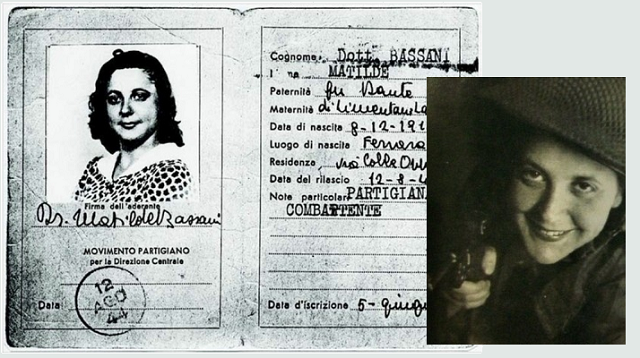 Firma dell'aderente
Dr. Matilde Bassani
MOVIMENTO PARTIGIANO
per la Direzione Centrale
12
AGO
44
Data
Cognome Dott. BASSANI
MATILDE
Paternità fu Dante
Maternità di Limentani
Data di nascita 8-12-191
Luogo di nascita Ferrara
Residenza via Colle
Data del rilascio 12-8-4
Note particolari PARTIGIAN
COMBATTENTE
Data d'iscrizione 5-giugn